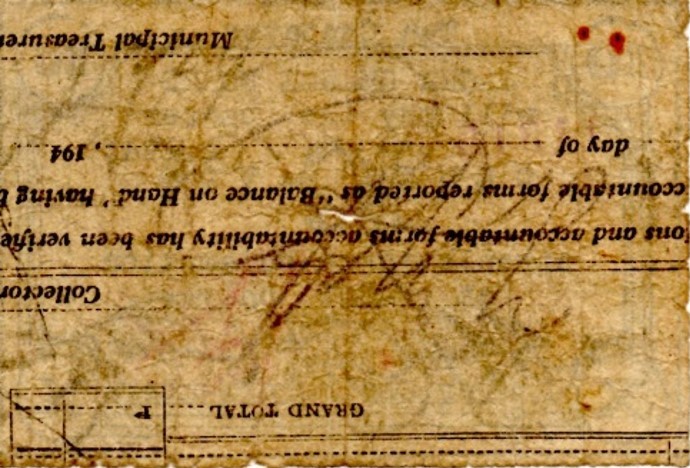 GRAND TOTAL P
Collector
ons and accountable forms accountability has been verifie
ccountable forms reported as "Balance on Hand' having b
day of , 194
Municipal Treasurer